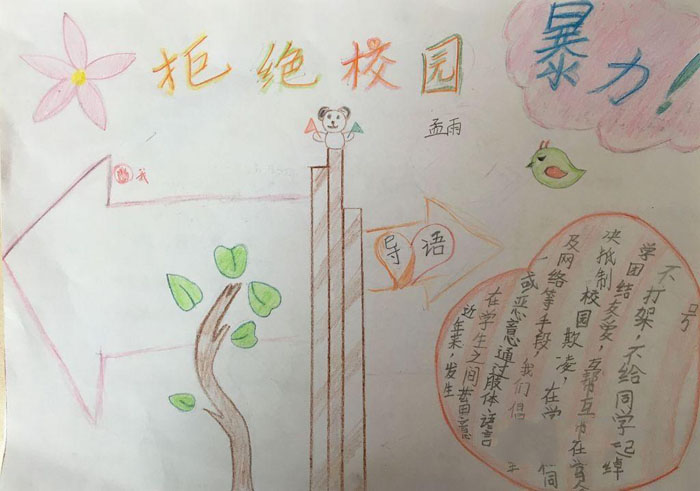 拒绝校园
暴力！
孟雨
我
导语
近年来，发生
在学生之间蓄意
或恶意通过肢体、语言
及网络等手段，我们倡
决抵制校园欺凌，在
学团结友爱，互帮互
不打架，不给同学起绰
号